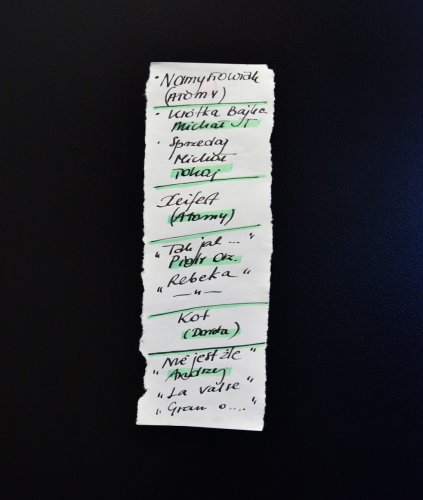 · Namysłowiak
(Atomy)
· Krótka Bajka
Michał J
· Sprzedaj
Michał
Pokój
Seifert
(Atomy)
„Tak jak ..."
Piotr Orz.
„Rebeka"
— " —
Kot
(Dorota)
„Nie jest źle"
Andrzej
„La valse"
„Gram o ...."